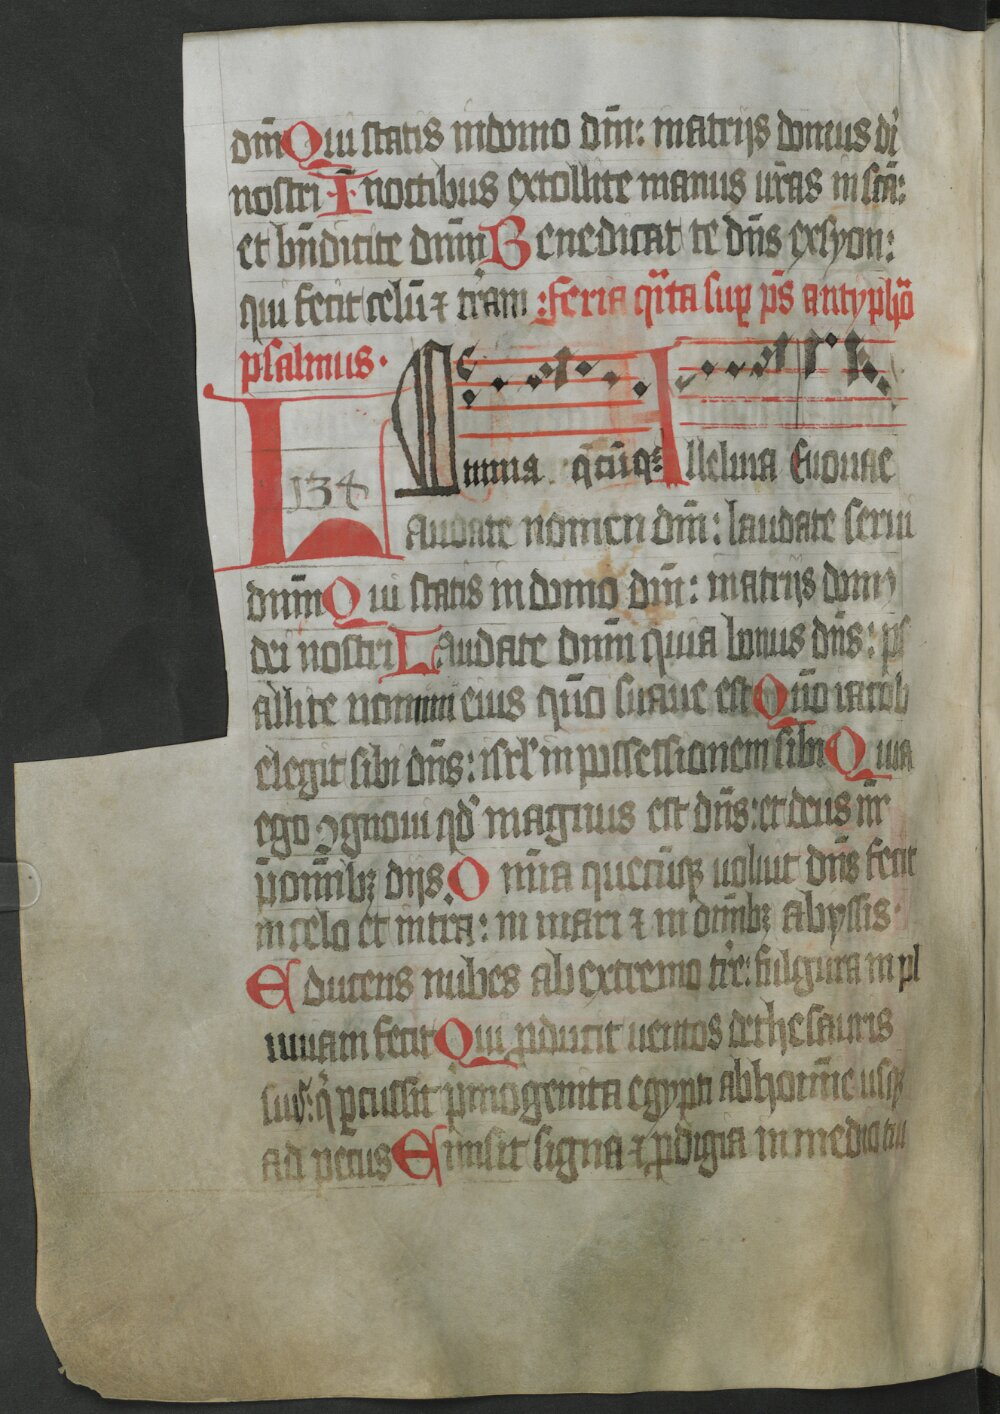 dm̄ Qui statis in domo dm̄: in atrijs domus di
nostri In noctibus extollite manus ur̄as in sc̄a:
et bn̄dicite dnm̄ Benedicat te dn̄s ex syon:
qui fecit celū ⁊ tr̄am :feria qi̅ta sup ps̄ antyphō
psalmus·
134
Omnia q̄cūqꝫ Alleluia Euouae
Laudate nomen dm̄: laudate serui
dnm̄ Qui statis in domo dm̄: in atrijs domꝰ
dei nostri Laudate dnm̄ quia bonus dn̄s: ps
allite nomini eius qn̄o suaue est Qn̄o iacob
elegit sibi dn̄s: isrl' in possessionem sibi Quia
ego ꝯgnoui qd' magnus est dn̄s: et deus nr̄
p̄ om̄ibꝫ dijs. Omīa quecūqꝫ uoluit dn̄s fecit
in celo et in tr̄a: in mari ⁊ in om̄ibꝫ abyssis·
Educens nubes ab extremo tr̄e: fulgura in pl
uuiam fecit Qui ꝓducit uentos de thesauris
suis: q̄ ꝑcussit p̄mogenita egypti ab homīe usqꝫ
ad pecus Emisit signa ⁊ ꝓdigia in medio tui